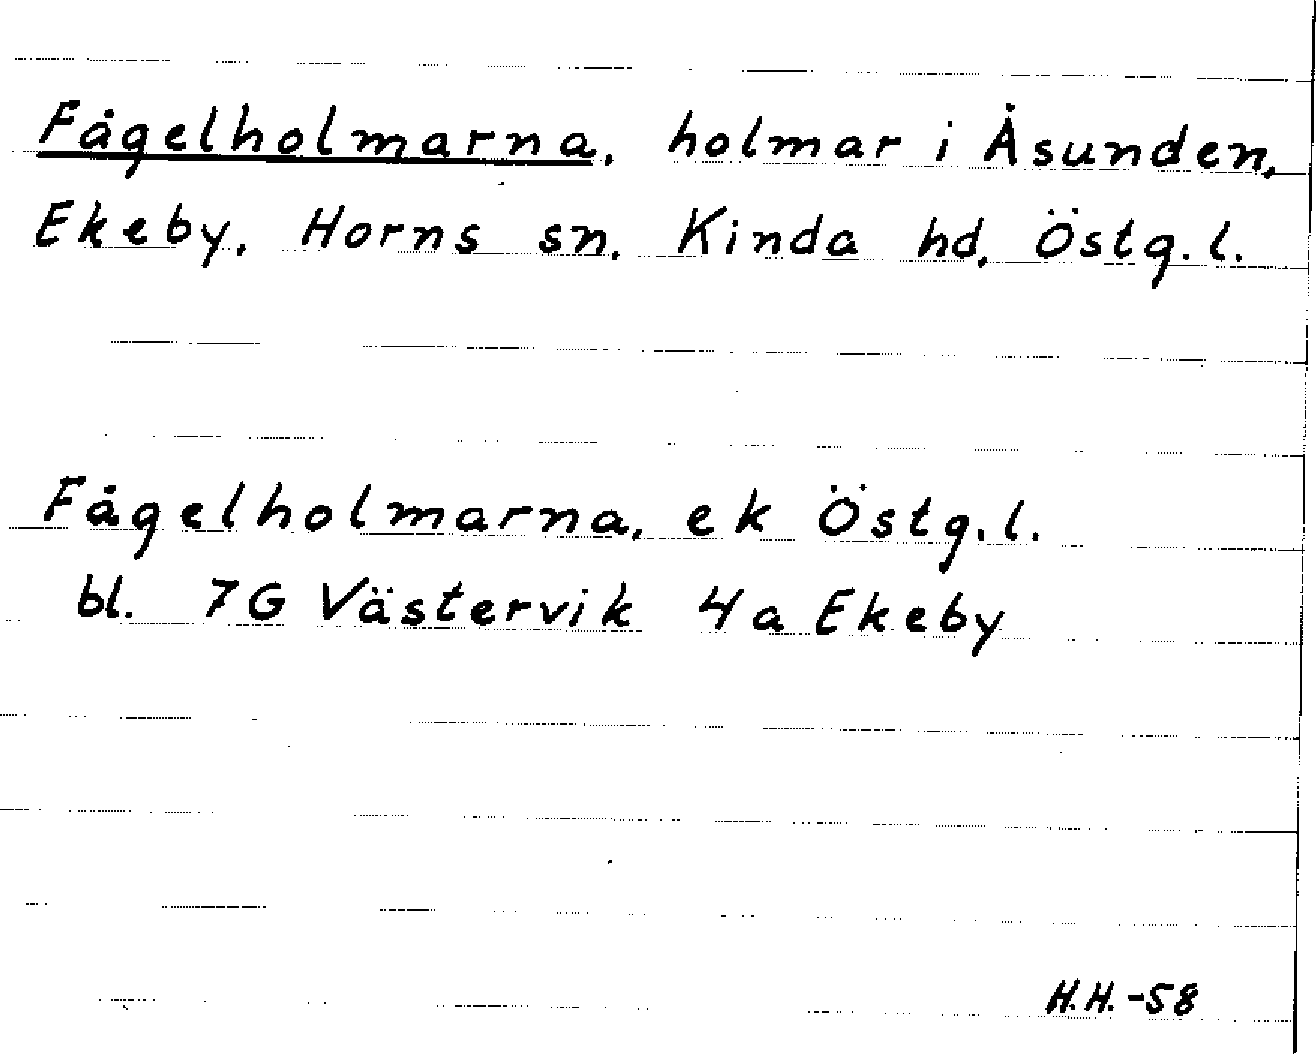 Fågelholmarna, holmar i Åsunden,
Ekeby, Horns sn, Kinda hd, Östg.l.
Fågelholmarna, ek Östg.l.
bl. 7G Västervik 4a Ekeby
H.H.-58